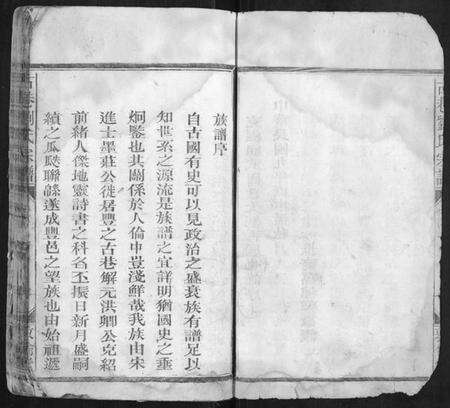 族譜序
自古國有史可以見政治之盛衰族有譜足以
知世系之源流是族譜之宜詳明猶國史之垂
炯鑒也其關係於人倫申豈淺鮮哉我族由宋
進士墨莊公徙居豐之古巷解元洪卿公克紹
前緒人傑地靈詩書之科名丕振日新月盛嗣
續之瓜瓞聯緜遂成豐邑之望族也由始祖遞